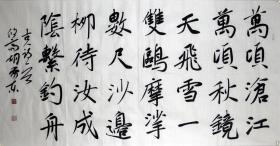 萬頃滄江
萬頃秋鏡
天飛雪一
雙鷗摩挲
數尺沙邊
柳待汝成
陰繫釣舟